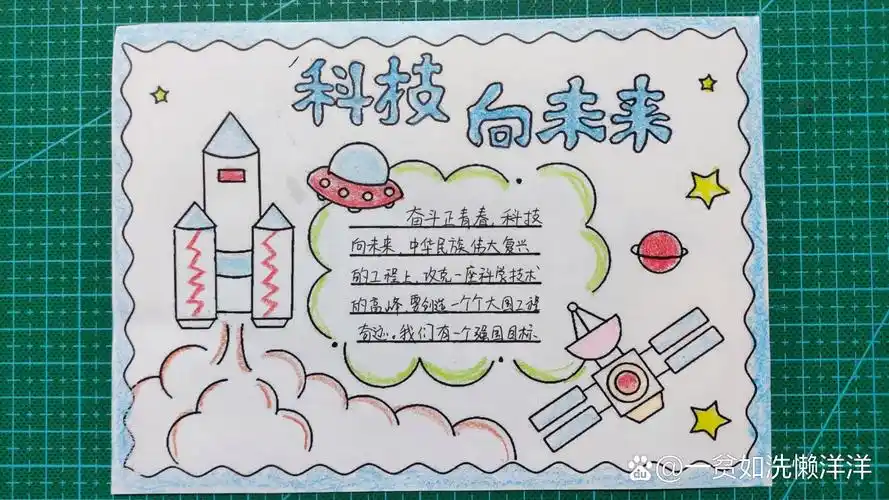 科技
向未来
奋斗正青春,科技
向未来,中华民族伟大复兴
的工程上,攻克一座科学技术
的高峰,要创造一个个大国工程
奇迹。我们有一个强国目标、
@一贫如洗懒洋洋